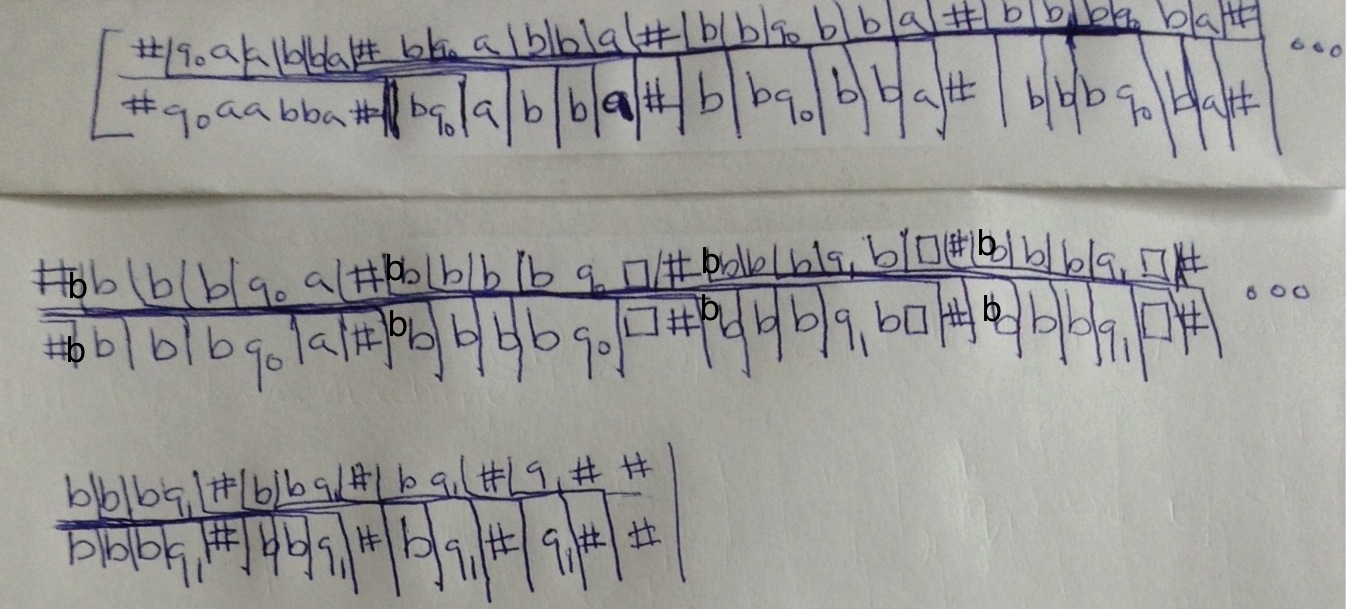 [ #|q₀ a|a|b|b|a|# b|q₀ a|b|b|a|#|b|b|q₀ b|b|a|#|b|b|b q₀ b|a|# ...
# q₀ a a b b a #| b q₀|a|b|b|a|#|b|b q₀|b|b|a|#|b|b|b q₀|b|a|#|
#b b|b|b|q₀ a|#|b b|b|b|b q₀ □|#|b b|b|b|q₁ b|□|#|b b|b|b|q₁ □|# ...
#b b|b|b q₀|a|#|b b|b|b|b q₀|□ #|b b|b|b|q₁ b □|#|b b|b|b q₁|□|#|
b|b|b q₁|#|b|b q₁|#|b q₁|#|q₁ # #|
b|b|b|q₁|#|b|b|q₁|#|b|q₁|#|q₁|#|#|